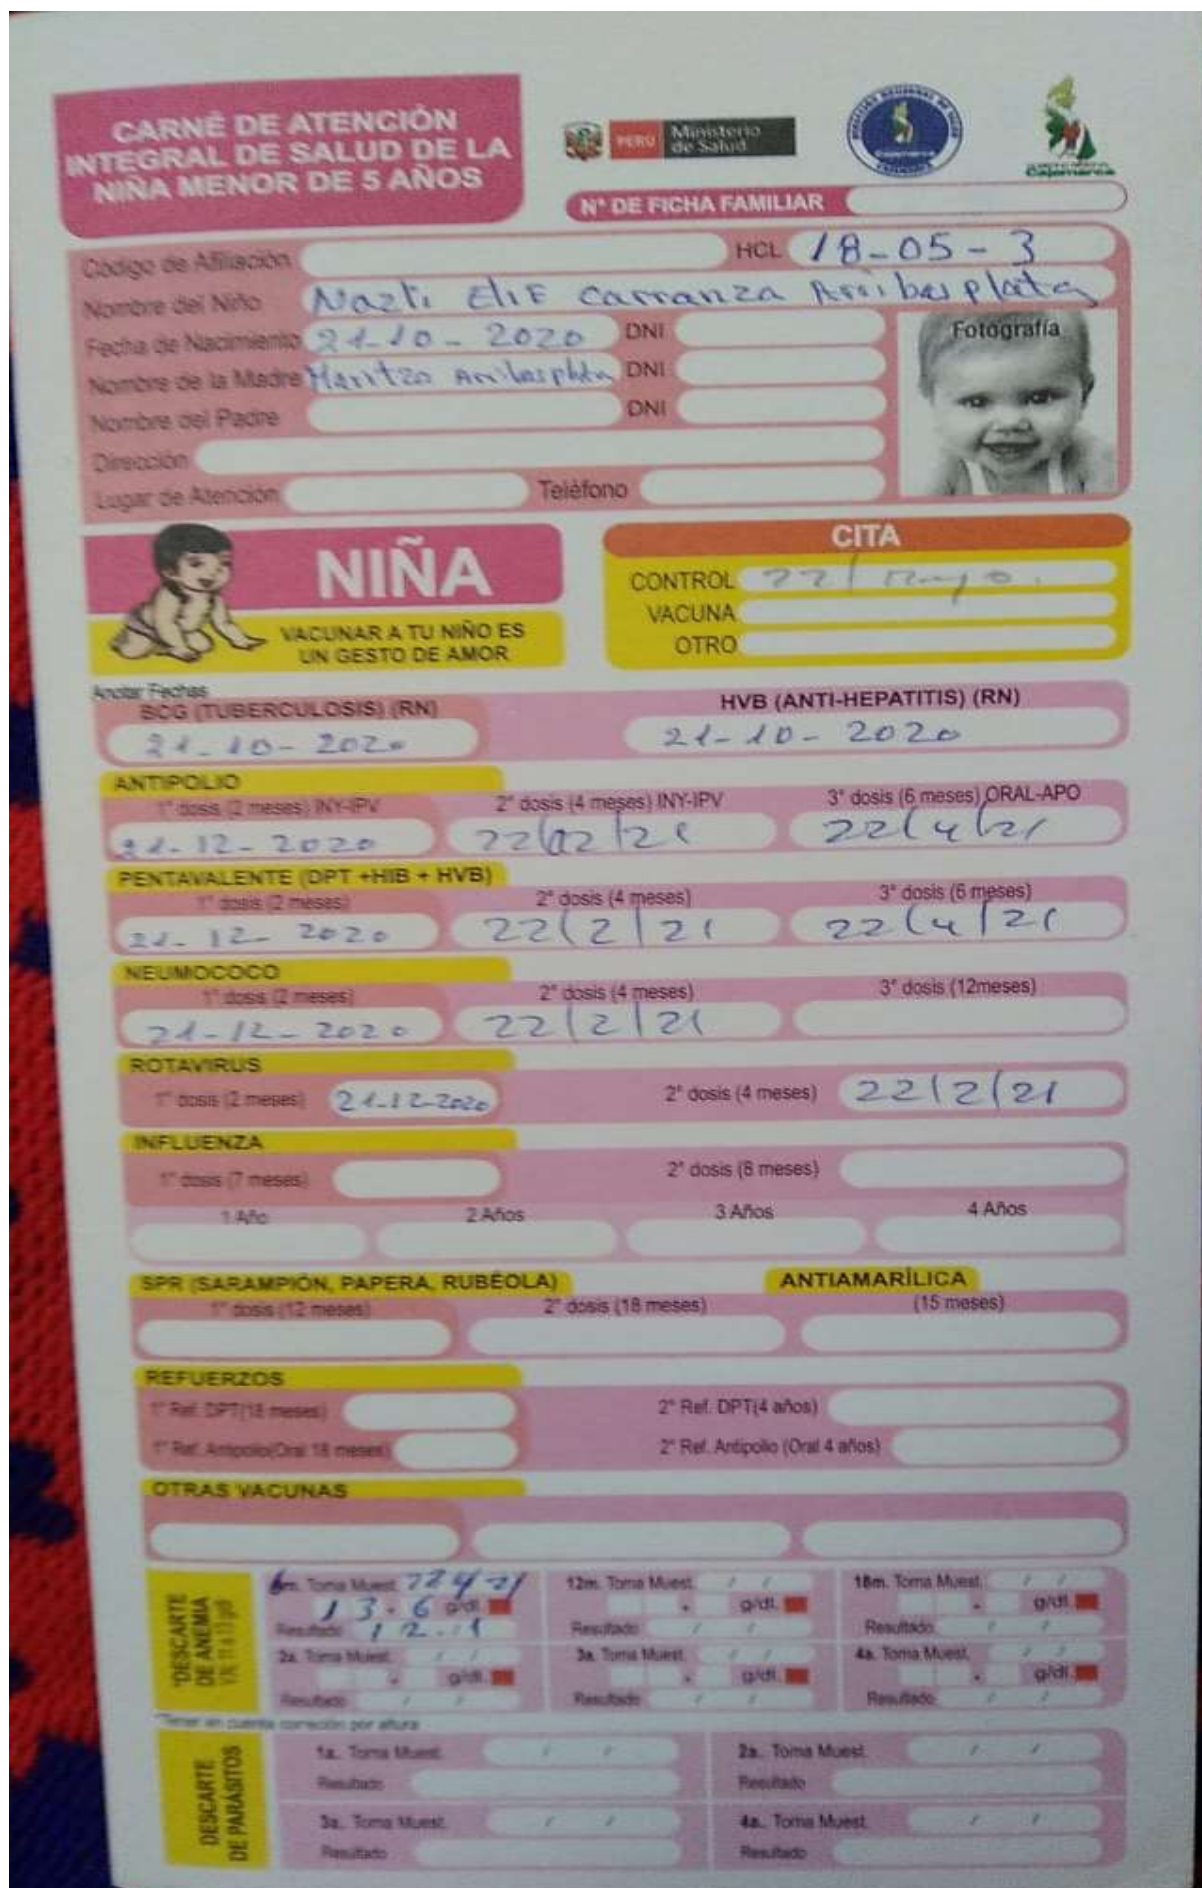 CARNÉ DE ATENCIÓN
INTEGRAL DE SALUD DE LA
NIÑA MENOR DE 5 AÑOS
PERÚ Ministerio
de Salud
Cajamarca
N° DE FICHA FAMILIAR
Código de Afiliación HCL 18-05-3
Nombre del Niño Nazli Elif Carranza Arribasplata
Fecha de Nacimiento 21-10-2020 DNI
Nombre de la Madre Maritza Arribasplata DNI
Nombre del Padre DNI
Dirección
Lugar de Atención Teléfono
Fotografía
NIÑA
VACUNAR A TU NIÑO ES
UN GESTO DE AMOR
CITA
CONTROL 22/Mayo.
VACUNA
OTRO
Anotar Fechas
BCG (TUBERCULOSIS) (RN) HVB (ANTI-HEPATITIS) (RN)
21-10-2020 21-10-2020
ANTIPOLIO
1° dosis (2 meses) INY-IPV 2° dosis (4 meses) INY-IPV 3° dosis (6 meses) ORAL-APO
21-12-2020 22/02/21 22/4/21
PENTAVALENTE (DPT +HIB + HVB)
1° dosis (2 meses) 2° dosis (4 meses) 3° dosis (6 meses)
21-12-2020 22/2/21 22/4/21
NEUMOCOCO
1° dosis (2 meses) 2° dosis (4 meses) 3° dosis (12meses)
21-12-2020 22/2/21
ROTAVIRUS
1° dosis (2 meses) 21-12-2020 2° dosis (4 meses) 22/2/21
INFLUENZA
1° dosis (7 meses) 2° dosis (8 meses)
1 Año 2 Años 3 Años 4 Años
SPR (SARAMPIÓN, PAPERA, RUBÉOLA) ANTIAMARÍLICA
1° dosis (12 meses) 2° dosis (18 meses) (15 meses)
REFUERZOS
1° Ref. DPT(18 meses) 2° Ref. DPT(4 años)
1° Ref. Antipolio(Oral 18 meses) 2° Ref. Antipolio (Oral 4 años)
OTRAS VACUNAS
*DESCARTE
DE ANEMIA
6m. Toma Muest. 22/4/21 12m. Toma Muest. / / 18m. Toma Muest. / /
13.6 g/dl. . g/dl. . g/dl.
Resultado 12.1 Resultado / / Resultado / /
2a. Toma Muest. / / 3a. Toma Muest. / / 4a. Toma Muest. / /
. g/dl. . g/dl. . g/dl.
Resultado / / Resultado / / Resultado / /
*Tener en cuenta corrección por altura
DESCARTE
DE PARÁSITOS
1a. Toma Muest. / / 2a. Toma Muest. / /
Resultado Resultado
3a. Toma Muest. / / 4a. Toma Muest. / /
Resultado Resultado